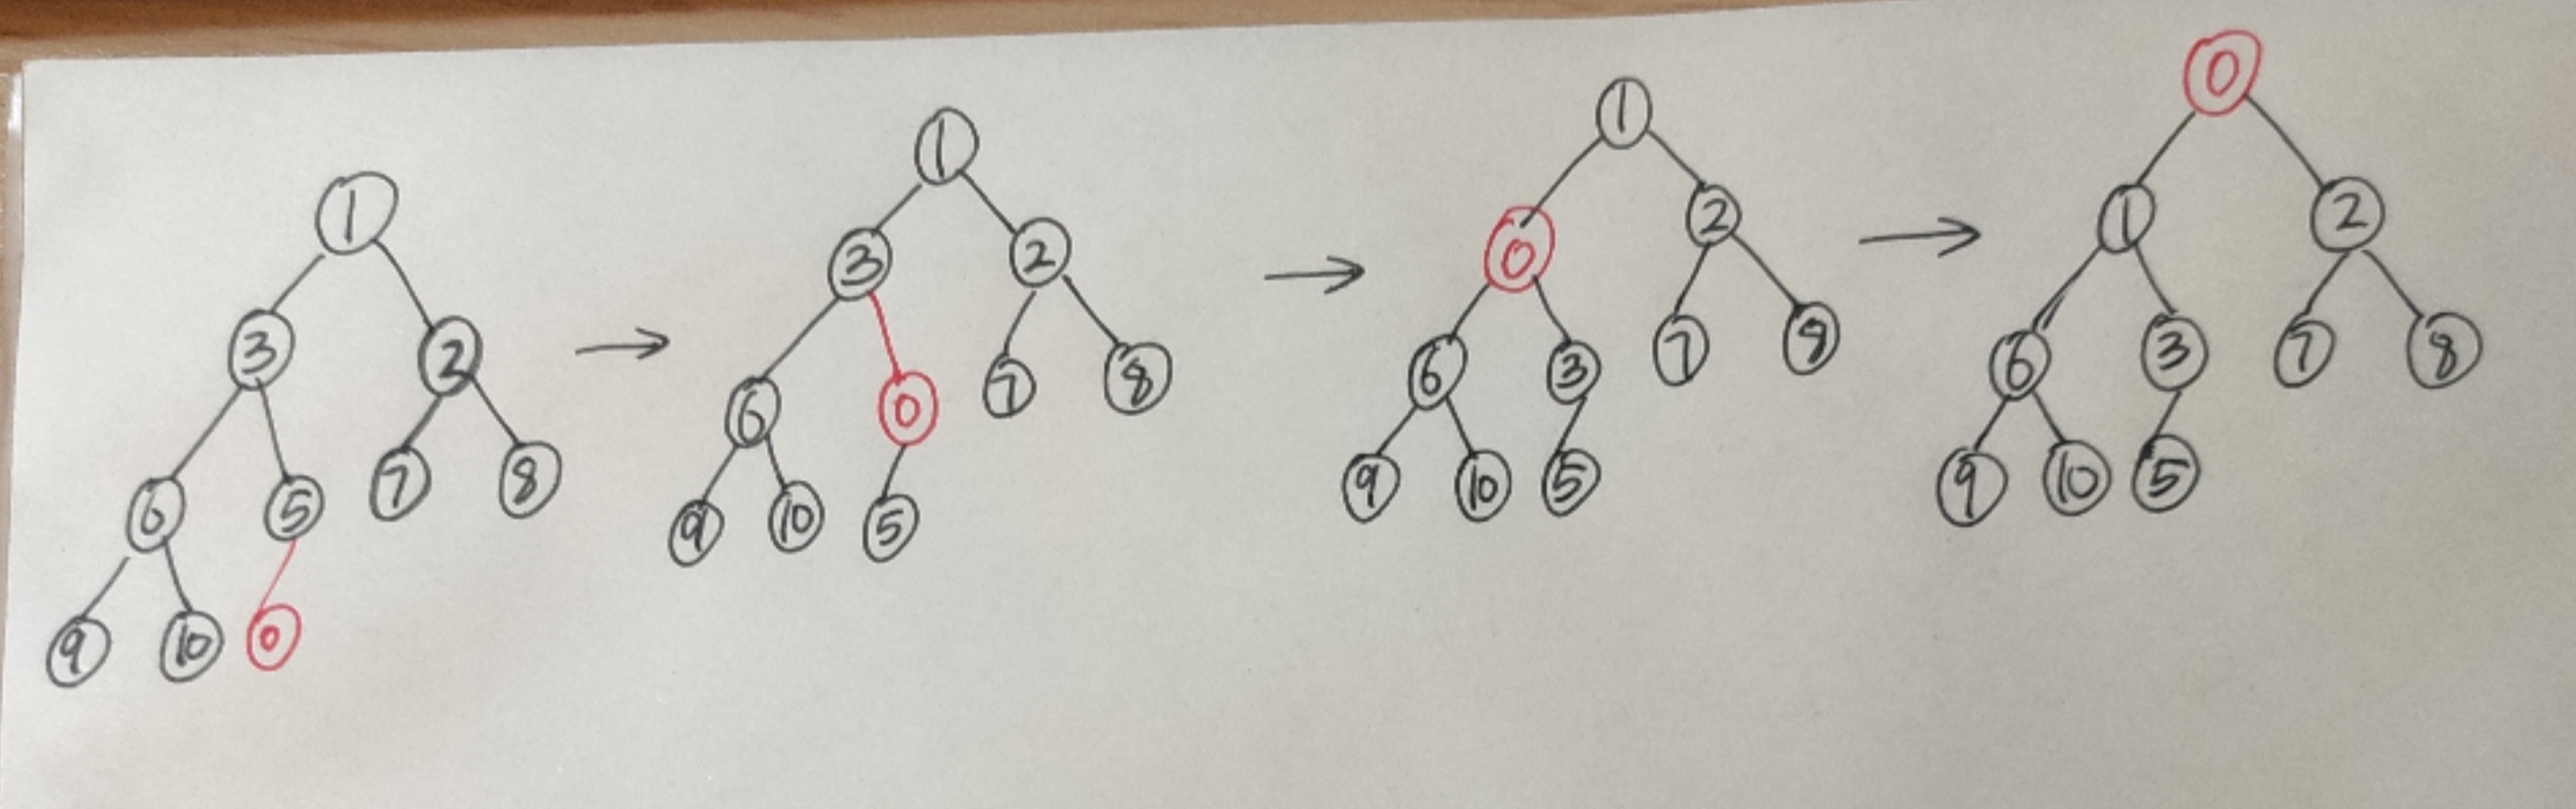 1
3 2
6 5 7 8
9 10 0
1
3 2
6 0 7 8
9 10 5
1
0 2
6 3 7 8
9 10 5
0
1 2
6 3 7 8
9 10 5